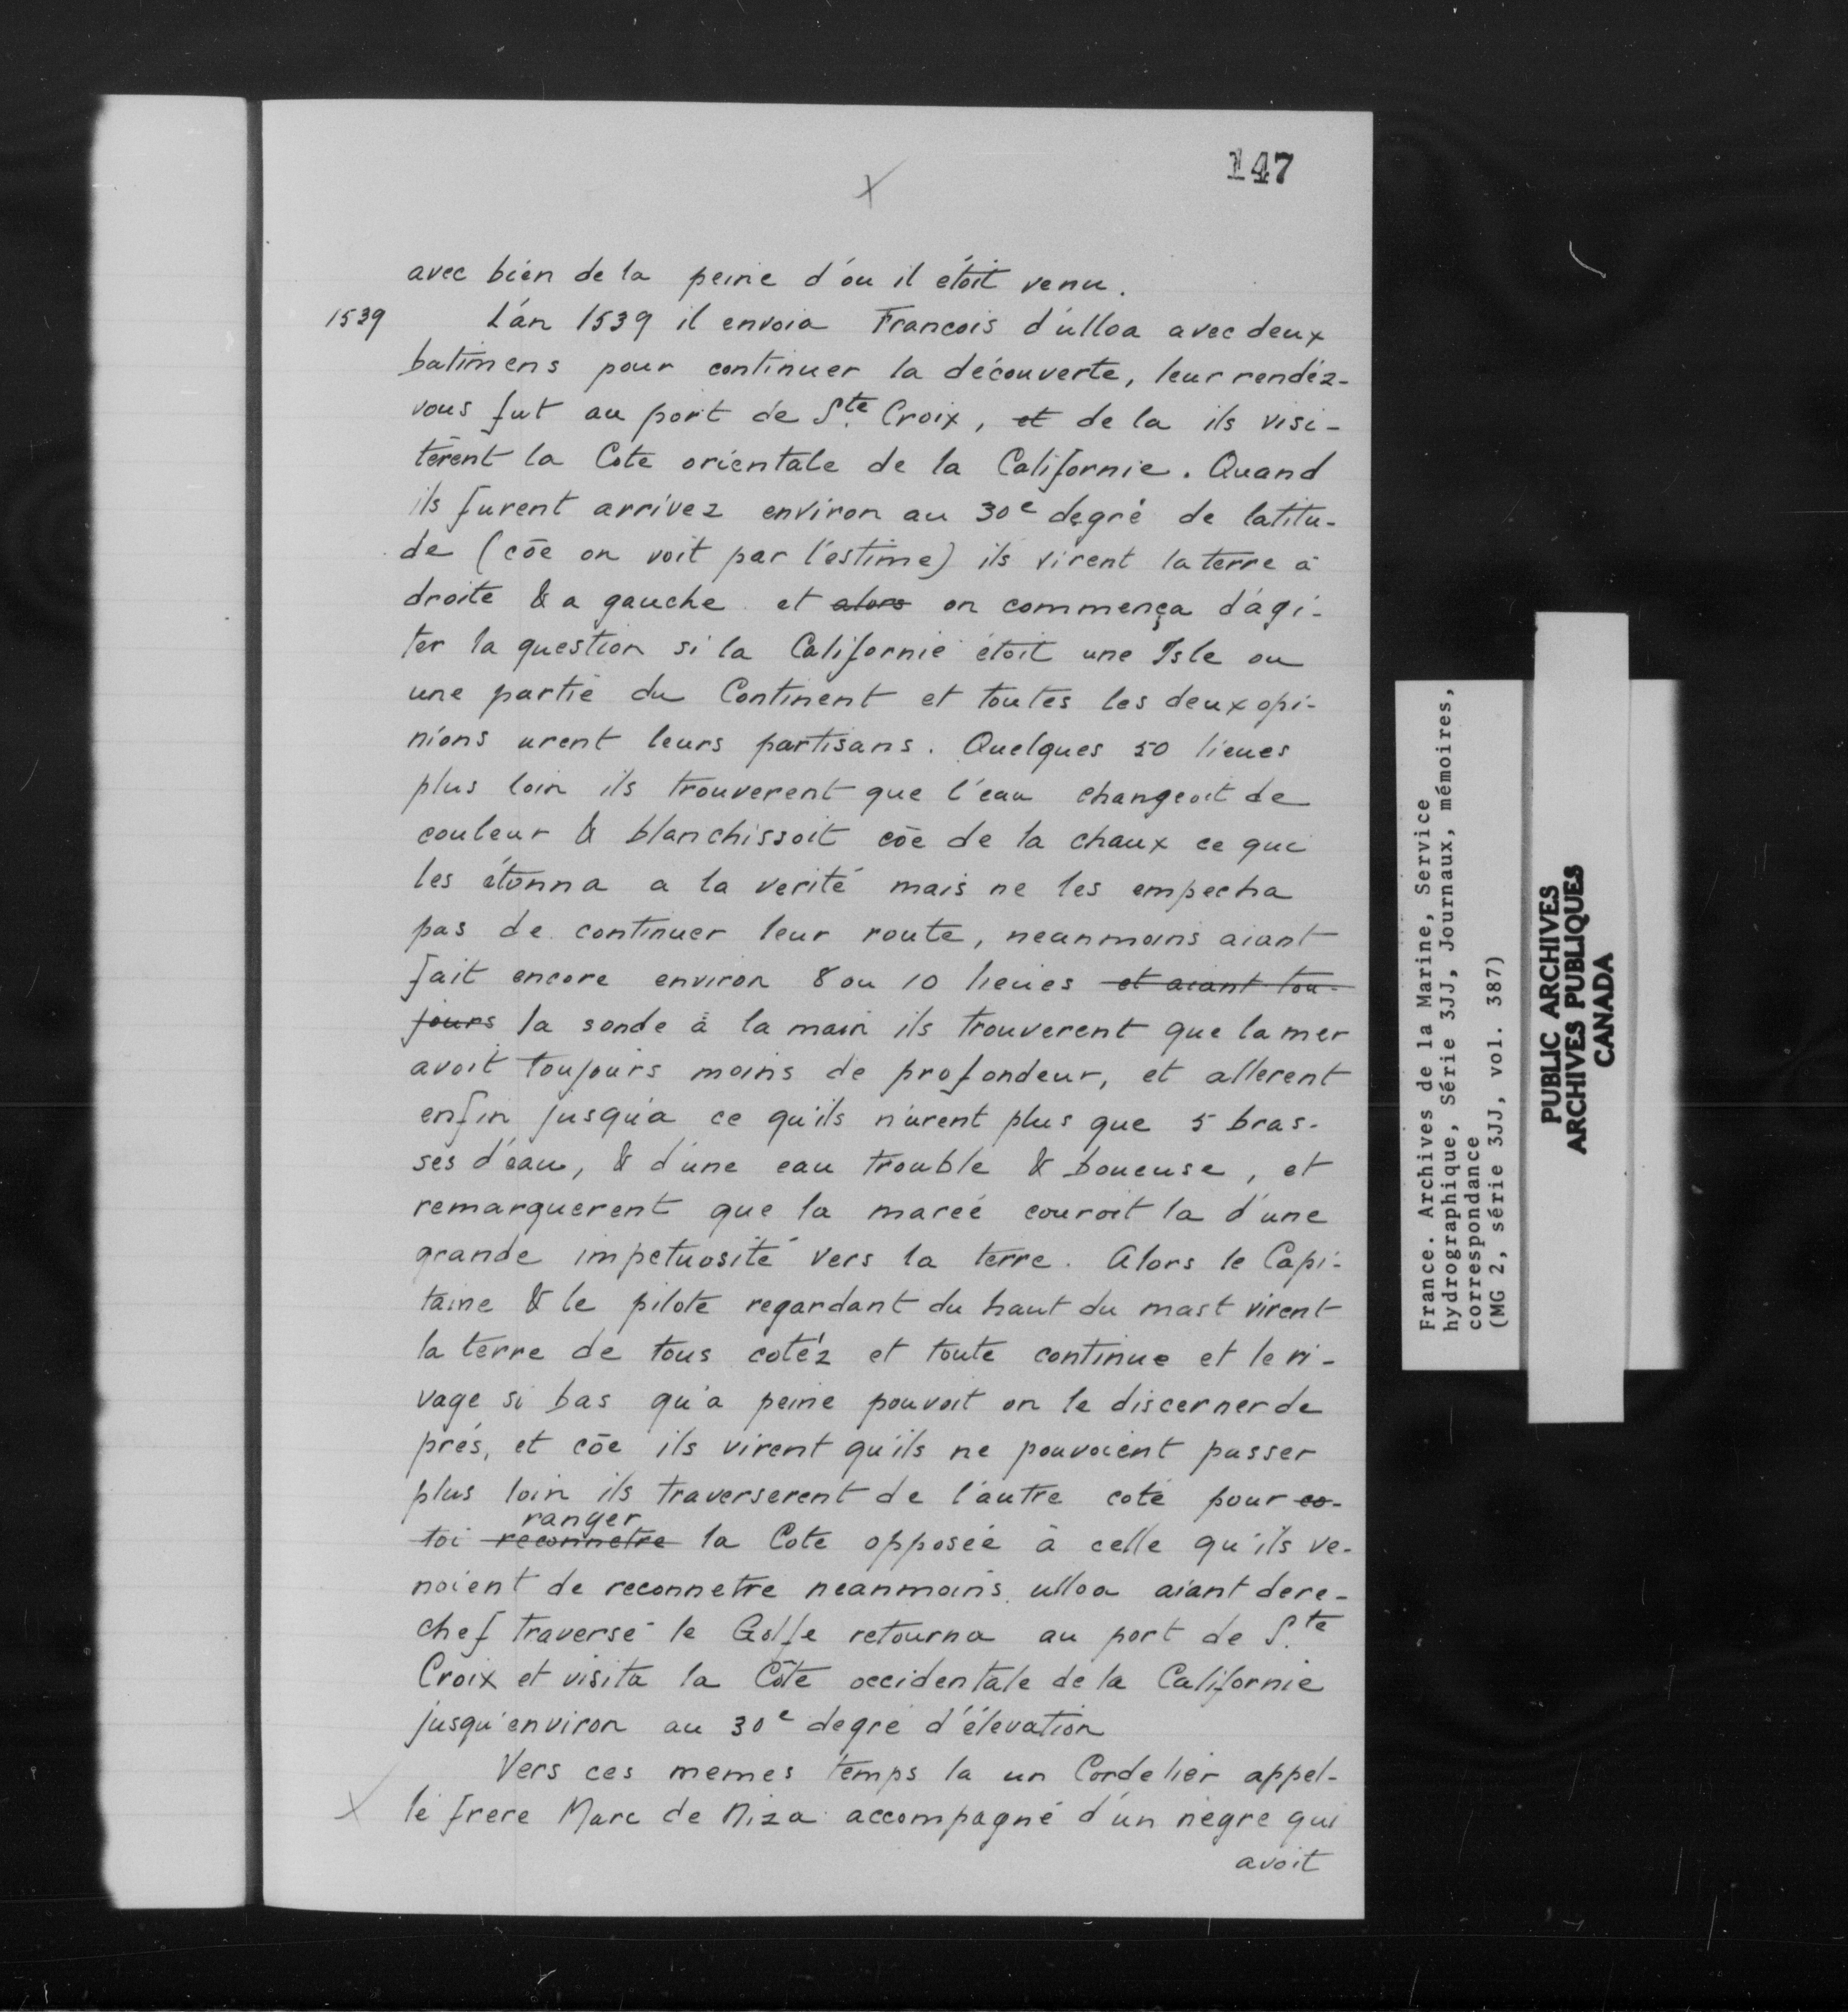 147
avec bien de la peine d'ou il étoit venu.
1539 L'an 1539 il envoia Francois d'ulloa avec deux
batimens pour continuer la découverte, leur rendéz-
vous fut au port de Ste. Croix, et de la ils visi-
térent la Cote orientale de la Californie. Quand
ils furent arrivez environ au 30e degré de latitu-
de (cōe on voit par l'estime) ils virent la terre à
droite & a gauche et alors on commença d'agi-
ter la question si la Californie étoit une Isle ou
une partie du Continent et toutes les deux opi-
nions urent leurs partisans. Quelques 50 lieues
plus loin ils trouverent que l'eau changeoit de
couleur & blanchissoit cōe de la chaux ce qui
les étonna a la verité mais ne les empecha
pas de continuer leur route, neanmoins aiant
fait encore environ 8 ou 10 lieues et aiant tou-
jours la sonde à la main ils trouverent que la mer
avoit toujours moins de profondeur, et allerent
enfin jusqu'a ce qu'ils n'urent plus que 5 bras-
ses d'eau, & d'une eau trouble & boueuse, et
remarquerent que la mareé couroit la d'une
grande impetuosité vers la terre. Alors le Capi-
taine & le pilote regardant du haut du mast virent
la terre de tous cotéz et toute continue et le ri-
vage si bas qu'a peine pouvoit on le discerner de
prés, et cōe ils virent qu'ils ne pouvoient passer
plus loin ils traverserent de l'autre coté pour co-
ranger
toi reconnetre la Cote opposée à celle qu'ils ve-
noient de reconnetre neanmoins ulloa aiant dere-
chef traversé le Golfe retourna au port de Ste.
Croix et visita la Côte occidentale de la Californie
jusqu'environ au 30e degré d'élevation
Vers ces memes temps la un Cordelier appel-
lé frere Marc de Niza accompagné d'un nègre qui
avoit
France. Archives de la Marine, Service
hydrographique, Série 3JJ, Journaux, mémoires,
correspondance
(MG 2, série 3JJ, vol. 387)
PUBLIC ARCHIVES
ARCHIVES PUBLIQUES
CANADA